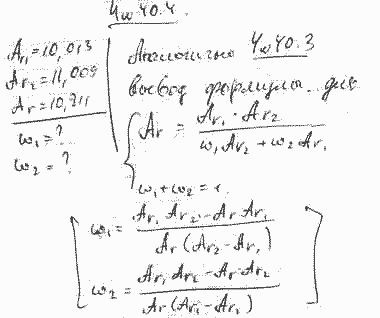 4w40.4.
Ar₁=10,013
Ar₂=11,009
Ar=10,811
w₁=?
w₂=?
Аналогично 4w40.3
вывод формулы для
{ Ar = Ar₁ · Ar₂ / (w₁Ar₂ + w₂Ar₁)
w₁+w₂=1.
[ w₁ = (Ar₁ Ar₂ - Ar Ar₁) / (Ar (Ar₂ - Ar₁))
w₂ = (Ar₁ Ar₂ - Ar Ar₂) / (Ar (Ar₁ - Ar₂)) ]